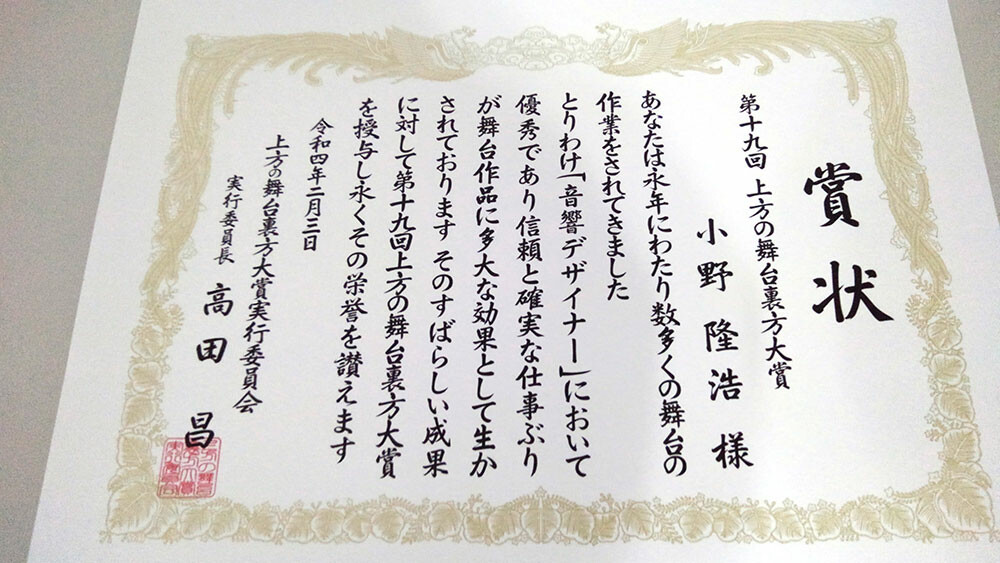 賞状
第十九回 上方の舞台裏方大賞
小野 隆浩 様
あなたは永年にわたり数多くの舞台の
作業をされてきました
とりわけ「音響デザイナー」において
優秀であり信頼と確実な仕事ぶり
が舞台作品に多大な効果として生か
されております そのすばらしい成果
に対して第十九回上方の舞台裏方大賞
を授与し永くその栄誉を讃えます
令和四年二月三日
上方の舞台裏方大賞実行委員会
実行委員長 高田 昌